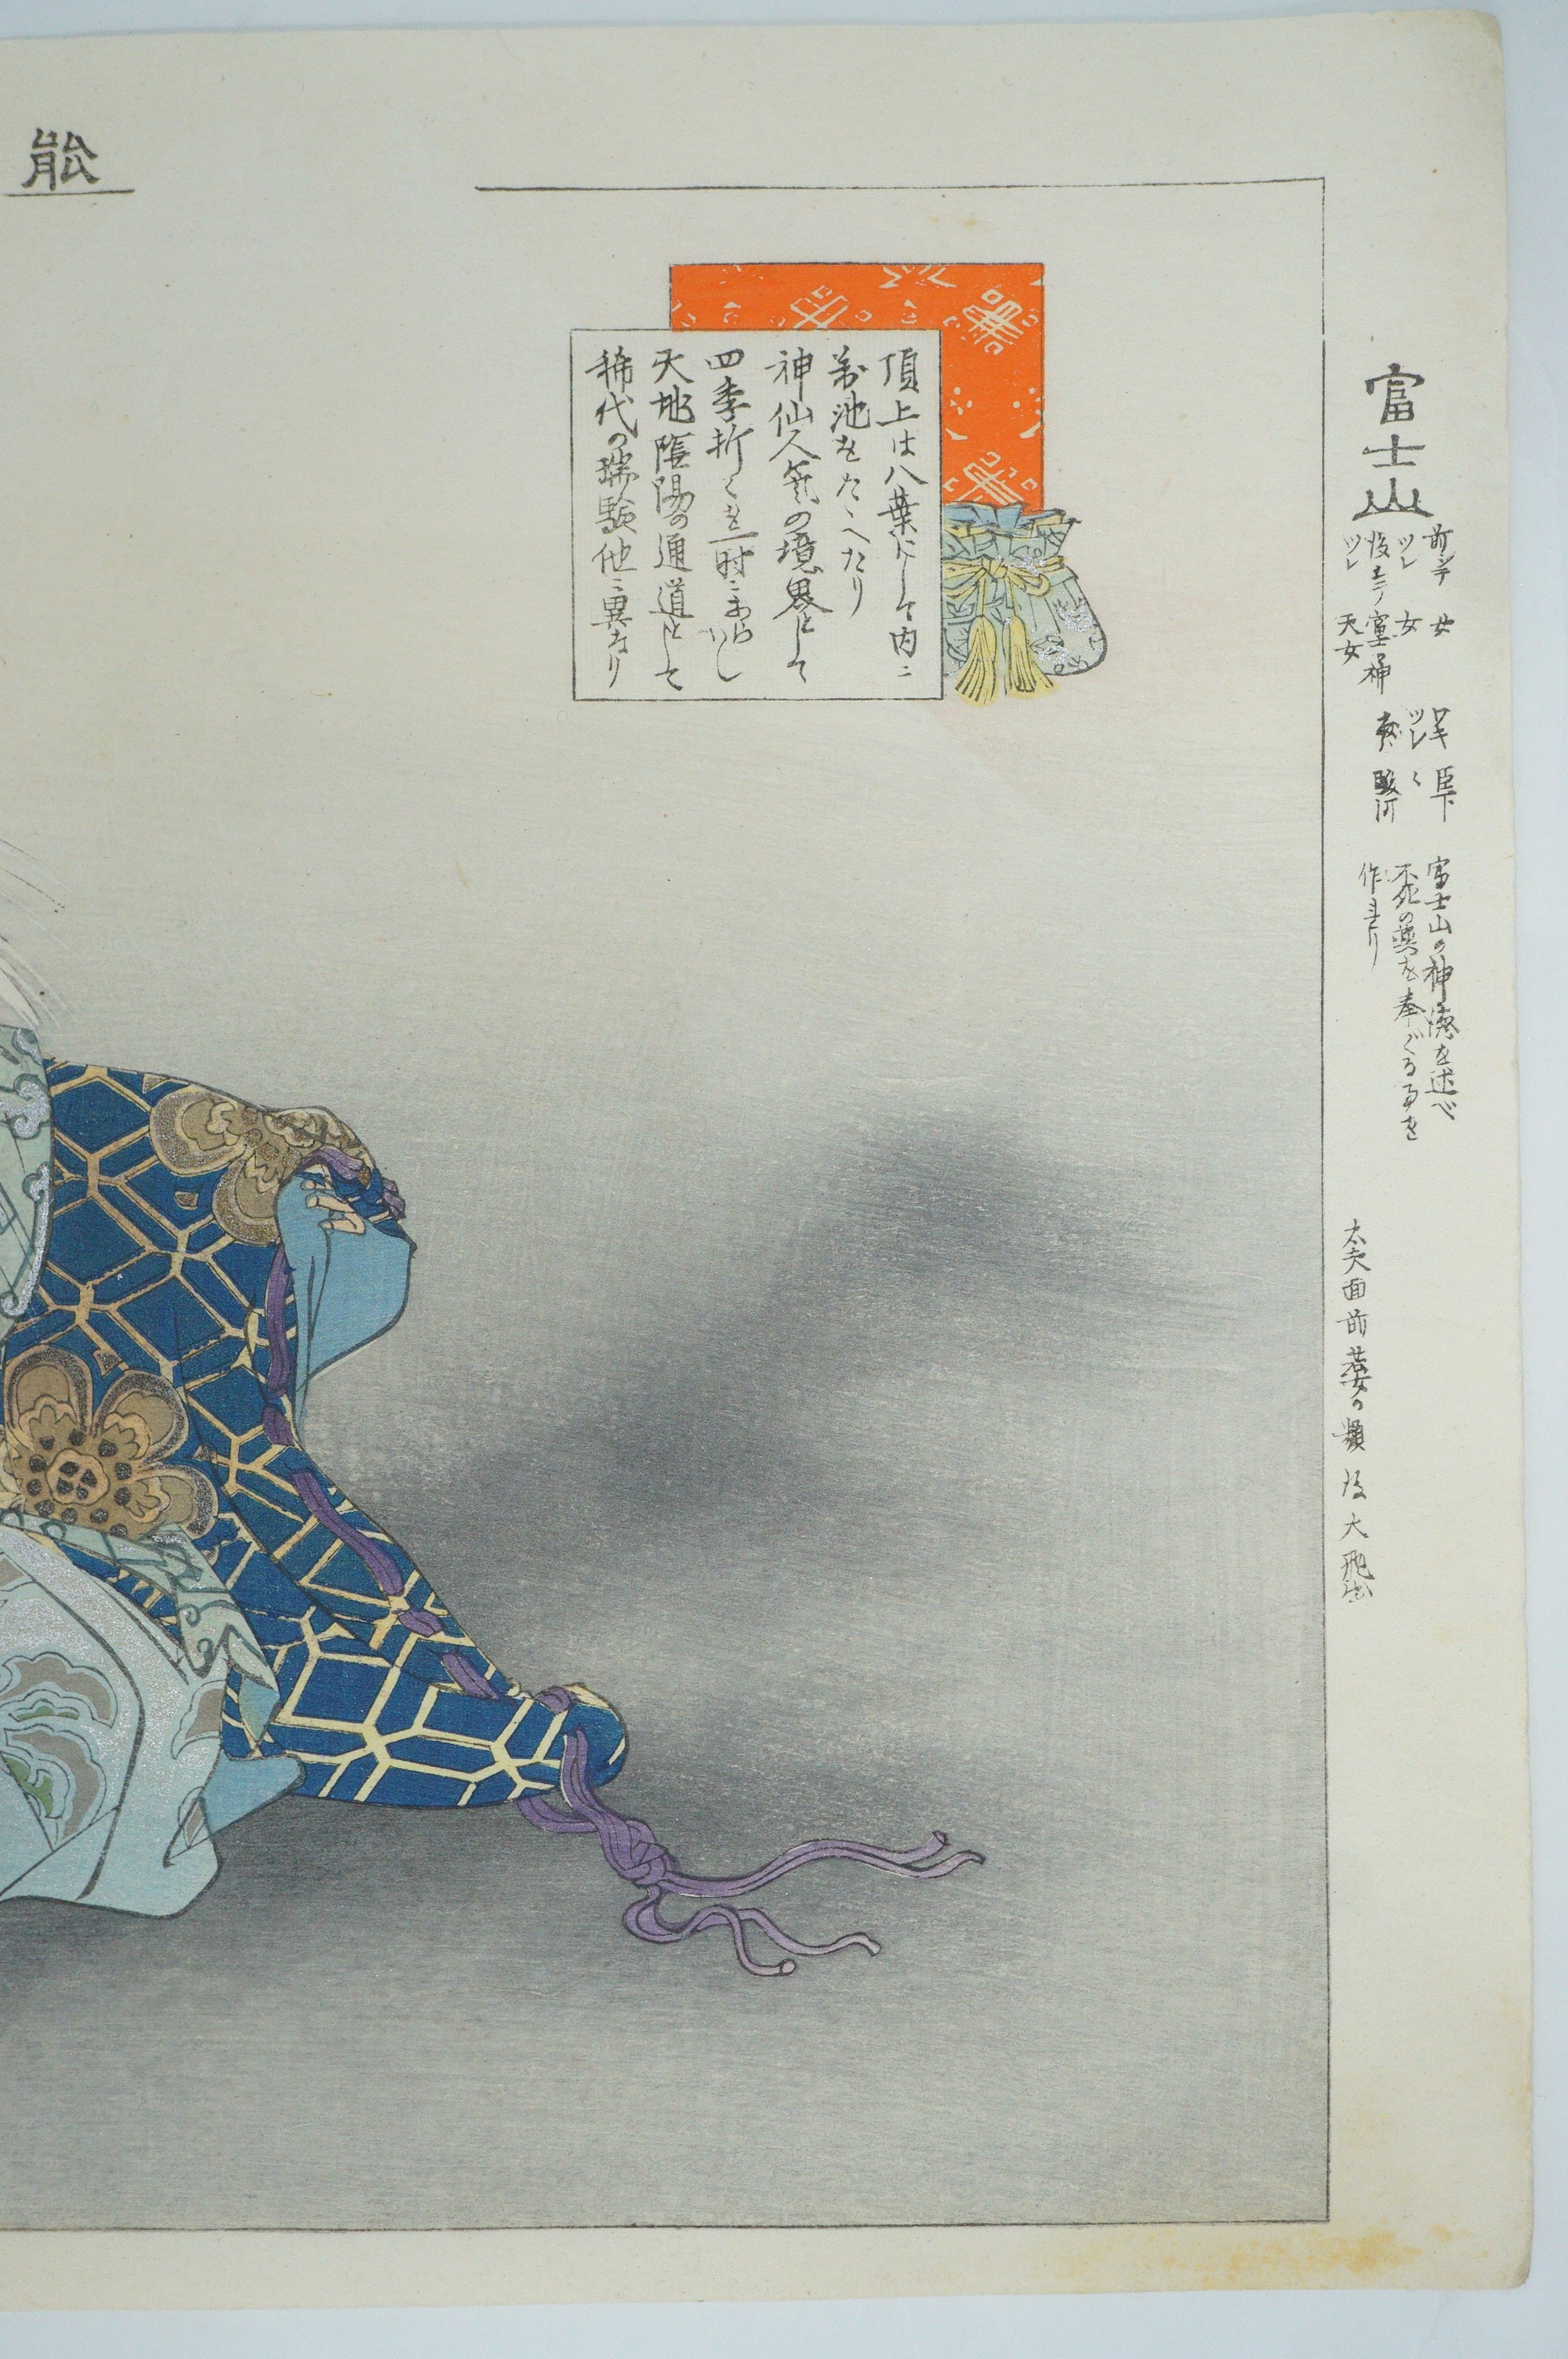 能
富士山
前シテ 女
ツレ 女
後シテ 富士ノ神
ツレ 天女
ワキ 臣下
ツレ 〱
駿河
富士山の神徳を述べ
不死の薬を奉ぐる事を
作れり
太夫面前若女の類 後大飛出
頂上は八葉にして内ニ
満池をたゝへたり
神仙人気の境界として
四季折〱を一時ニあらハし
天地陰陽の通道として
稀代の瑞験他ニ異なり